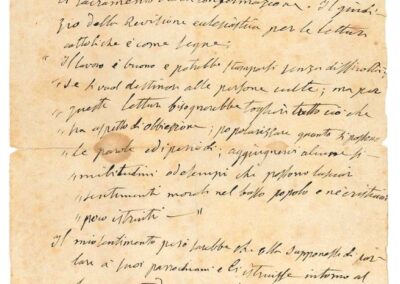 Sacramento della Confermazione. Il giudi-
zio della Revisione ecclesiastica per le letture
cattoliche è come segue:
"Il lavoro è buono e potrebbe stamparsi senza difficoltà
"se si vuol destinare alle persone culte; ma per
"queste letture bisognerebbe togliere tutto ciò che
"ha aspetto di obbiezione; popolarizzare quanto si possono
"le parole ed i periodi; aggiugnervi alcune si-
"militudini od esempi che possono lasciar
"sentimenti morali nel basso popolo e ne' cristiani
"poco istruiti — "
Il mio sentimento però sarebbe che ella supponesse di par-
lare a' suoi parrochiani e li istruisse intorno al